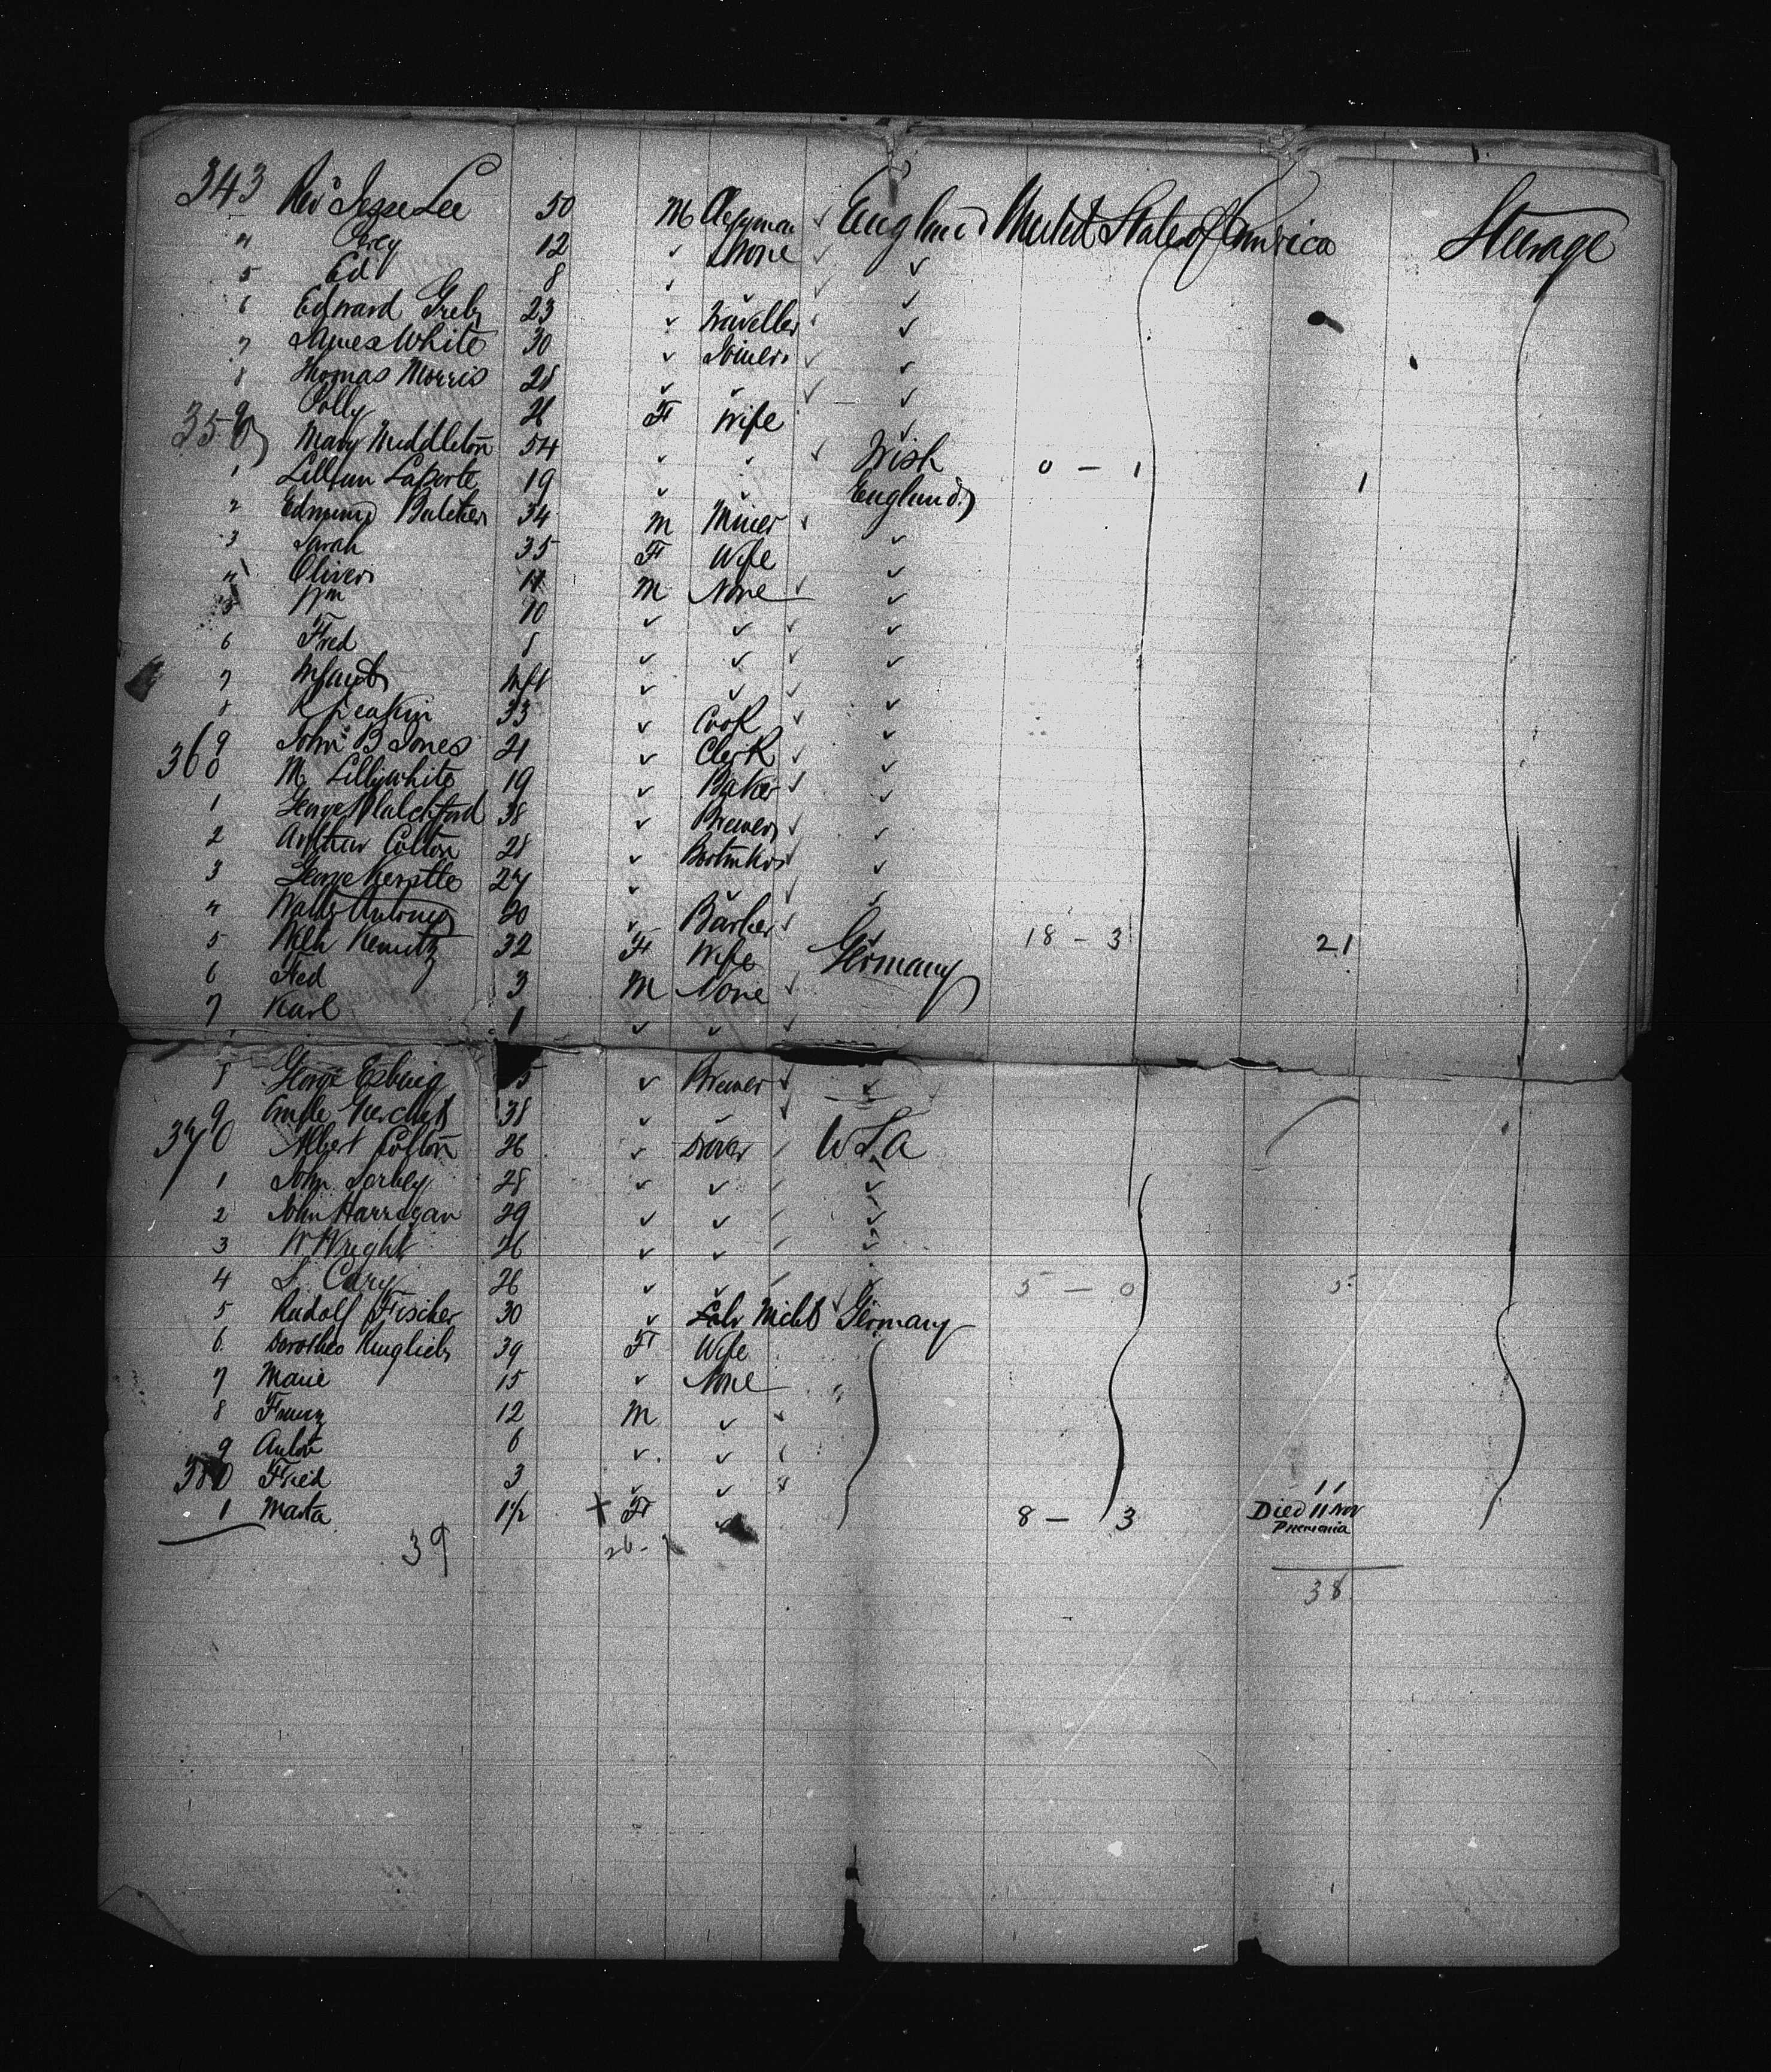 343 Rev Jesse Lee 50 M Clergyman ✓ England United State of America Steerage
4 Percy 12 ✓ None ✓ ✓
5 Ed 8 ✓ ✓ ✓ ✓
6 Edward 23 ✓ Traveller ✓ ✓
7 James White 30 ✓ Joiner ✓ ✓
8 Thomas Morris 28 ✓ ✓ ✓ ✓
9 Polly 26 F Wife ✓
350 Mary Middleton 54 ✓ ✓ ✓ Irish 0 — 1 1
1 Lillian Laporte 19 ✓ ✓ England
2 Edmund 34 M Miner ✓ ✓
3 Sarah 35 F Wife ✓
4 Oliver 11 M None ✓ ✓
5 Wm 10 ✓ ✓ ✓ ✓
6 Fred 8 ✓ ✓ ✓ ✓
7 Infant Inft ✓ ✓ ✓ ✓
8 33 ✓ Cook ✓ ✓
9 John B Jones 21 ✓ Clerk ✓ ✓
360 M Lillywhite 19 ✓ Baker ✓ ✓
1 George Blatchford 38 ✓ Brewer ✓ ✓
2 Arthur Colton 28 ✓ ✓ ✓
3 George 27 ✓ ✓ ✓ ✓
4 20 ✓ Barber ✓ ✓ 18 — 3 21
5 32 F Wife Germany
6 Fred 3 M None ✓
7 Karl 1 ✓ ✓ ✓
8 George 5 ✓ Brewer ✓ ✓
9 38 ✓ ✓ ✓
370 Albert Colton 26 ✓ Drover ✓ U S A
1 John 28 ✓ ✓ ✓ ✓
2 John Harrigan 29 ✓ ✓ ✓ ✓
3 W Wright 26 ✓ ✓ ✓ ✓
4 S. Cary 26 ✓ ✓ ✓ ✓ 5 — 0 5
5 Rudolf Fischer 30 ✓ Germany
6 39 F Wife
7 Marie 15 ✓ None "
8 Franz 12 M ✓ ✓
9 Anton 6 ✓ ✓ ✓
380 Fried 3 ✓ ✓ ✓ 11
1 Marta 1½ + F ✓ 8 — 3 Died 11 Nov
Pnemonia
39
38